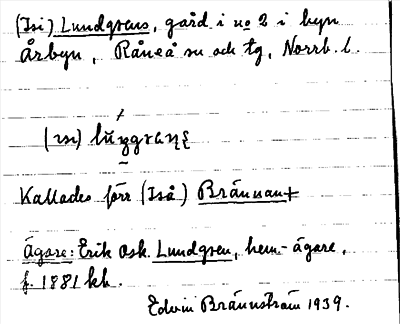 (Isi) Lundgrens, gård i no 2 i byn
Årbyn, Råneå sn och tg, Norrb. l.
Kallades förr (Iså) Brännan
Ägare: Erik Osk. Lundgren, hem.-ägare,
f. 1881 kh.
Edvin Brännström 1939.